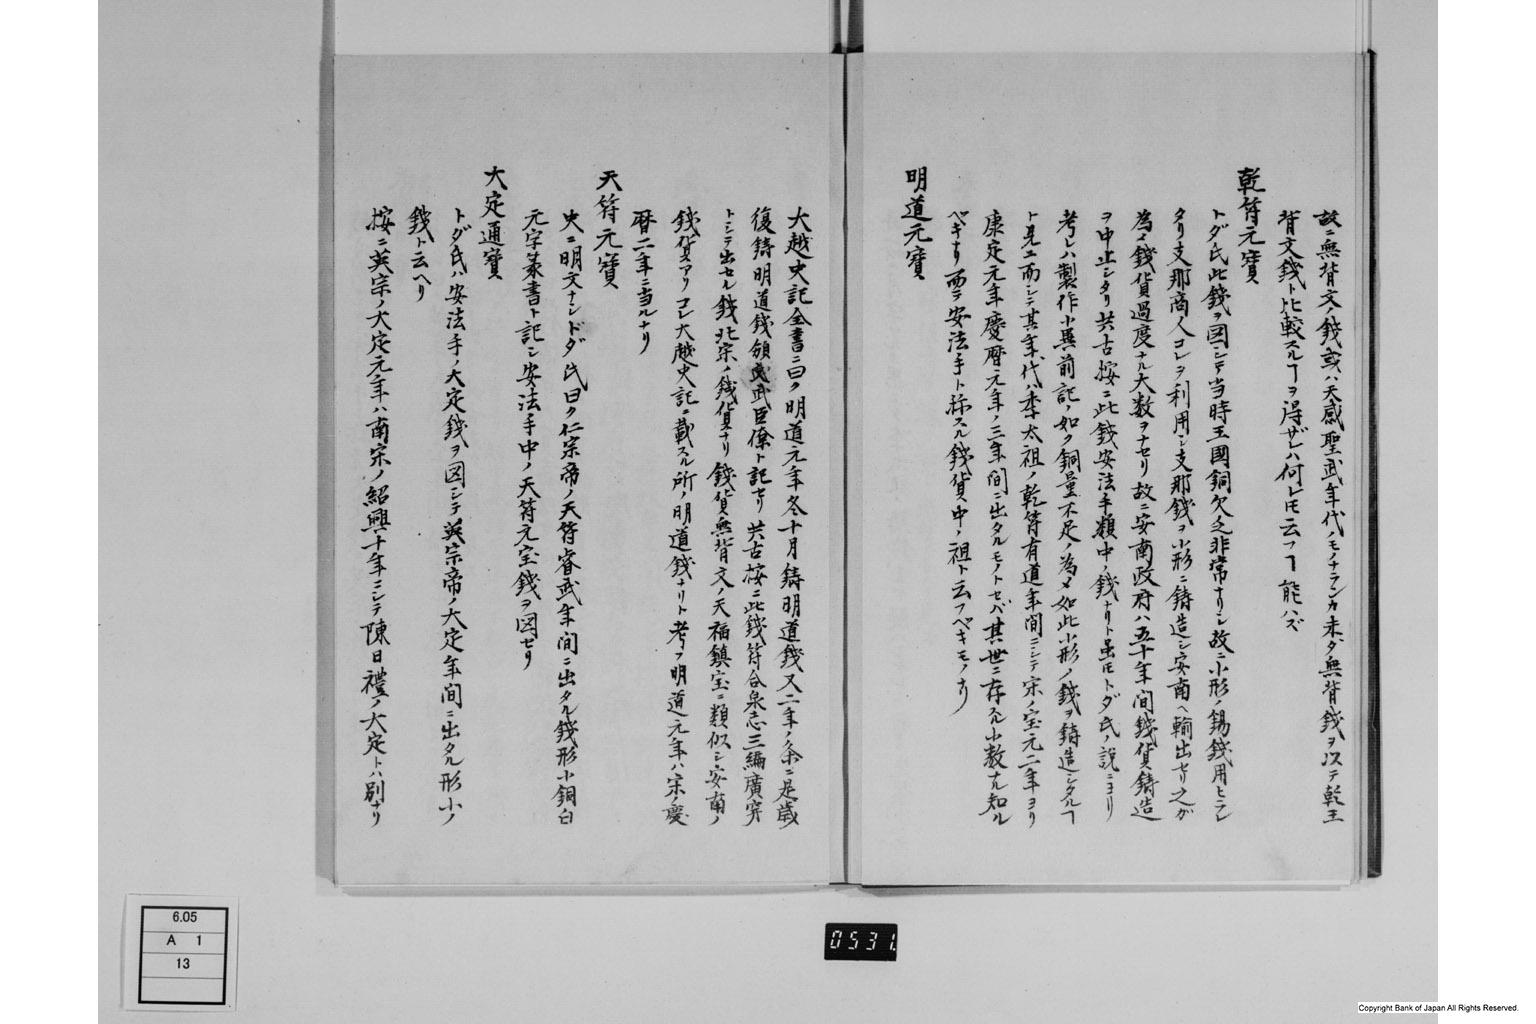 故ニ無背文ノ錢或ハ天感聖武年代ノモノナランカ未タ無背錢ヲ以テ乾王
背文錢ト比較スルヿヲ得ザレハ何レトモ云フヿ能ハズ
乾符元寶
トダ氏此錢ヲ図シテ当時王國銅欠乏非常ナリシ故ニ小形ノ錫錢用ヒラレ
タリ支那商人コレヲ利用シ支那錢ヲ小形ニ鋳造シ安南ヘ輸出セリ之ガ
為メ錢貨過度ナル大数ヲナセリ故ニ安南政府ハ五十年間錢貨鋳造
ヲ中止シタリ共古按ニ此錢安法手類中ノ錢ナリト虽モトダ氏ノ説ニヨリ
考レハ製作小異前記ノ如ク銅量不足ノ為メ如此小形ノ錢ヲ鋳造シタルヿ
ト見エ而シテ其年代ハ李太祖ノ乾符有道年間ニシテ宋ノ宝元二年ヨリ
康定元年慶暦元年ノ三年間ニ出タルモノトセバ其世ニ存スル小数ナル知ル
ベキナリ而テ安法手ト称スル錢貨中ノ祖ト云フベキモノナリ
明道元寶
大越史記全書ニ曰ク明道元年冬十月鋳明道錢又二年ノ条ニ是歳
復鋳明道錢頒文武臣僚ト記セリ共古按ニ此錢符合泉志三編廣穿
トシテ出セル錢北宗ノ錢貨ナリ錢貨無背文ノ天福鎮宝ニ類似シ安南ノ
錢貨アリコレ大越史記ニ載スル所ノ明道錢ナリト考フ明道元年ハ宋ノ慶
暦二年ニ当ルナリ
天符元寶
史ニ明文ナシトダ氏曰ク仁宗帝ノ天符睿武年間ニ出タル錢形小銅白
元字篆書ト記シ安法手中ノ天符元宝錢ヲ図セリ
大定通寶
トダ氏ハ安法手ノ大定錢ヲ図シテ英宗帝ノ大定年間ニ出タル形小ノ
錢ト云ヘリ
按ニ英宗ノ大定元年ハ南宋ノ紹興十年ニシテ陳日禮ノ大定トハ別ナリ
6.05
A 1
13
0531
Copyright Bank of Japan All Rights Reserved.